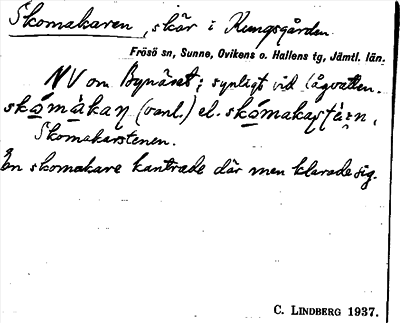 Skomakaren, skär i Kungsgården.
Frösö sn, Sunne, Ovikens o. Hallens tg, Jämtl. län.
NV om Bynäset; synligt vid lågvatten.
skómàkaɳ (vanl.) el. skómakaʂtàɪn,
Skomakarstenen.
En skomakare kantrade där men klarade sig.
C. LINDBERG 1937.